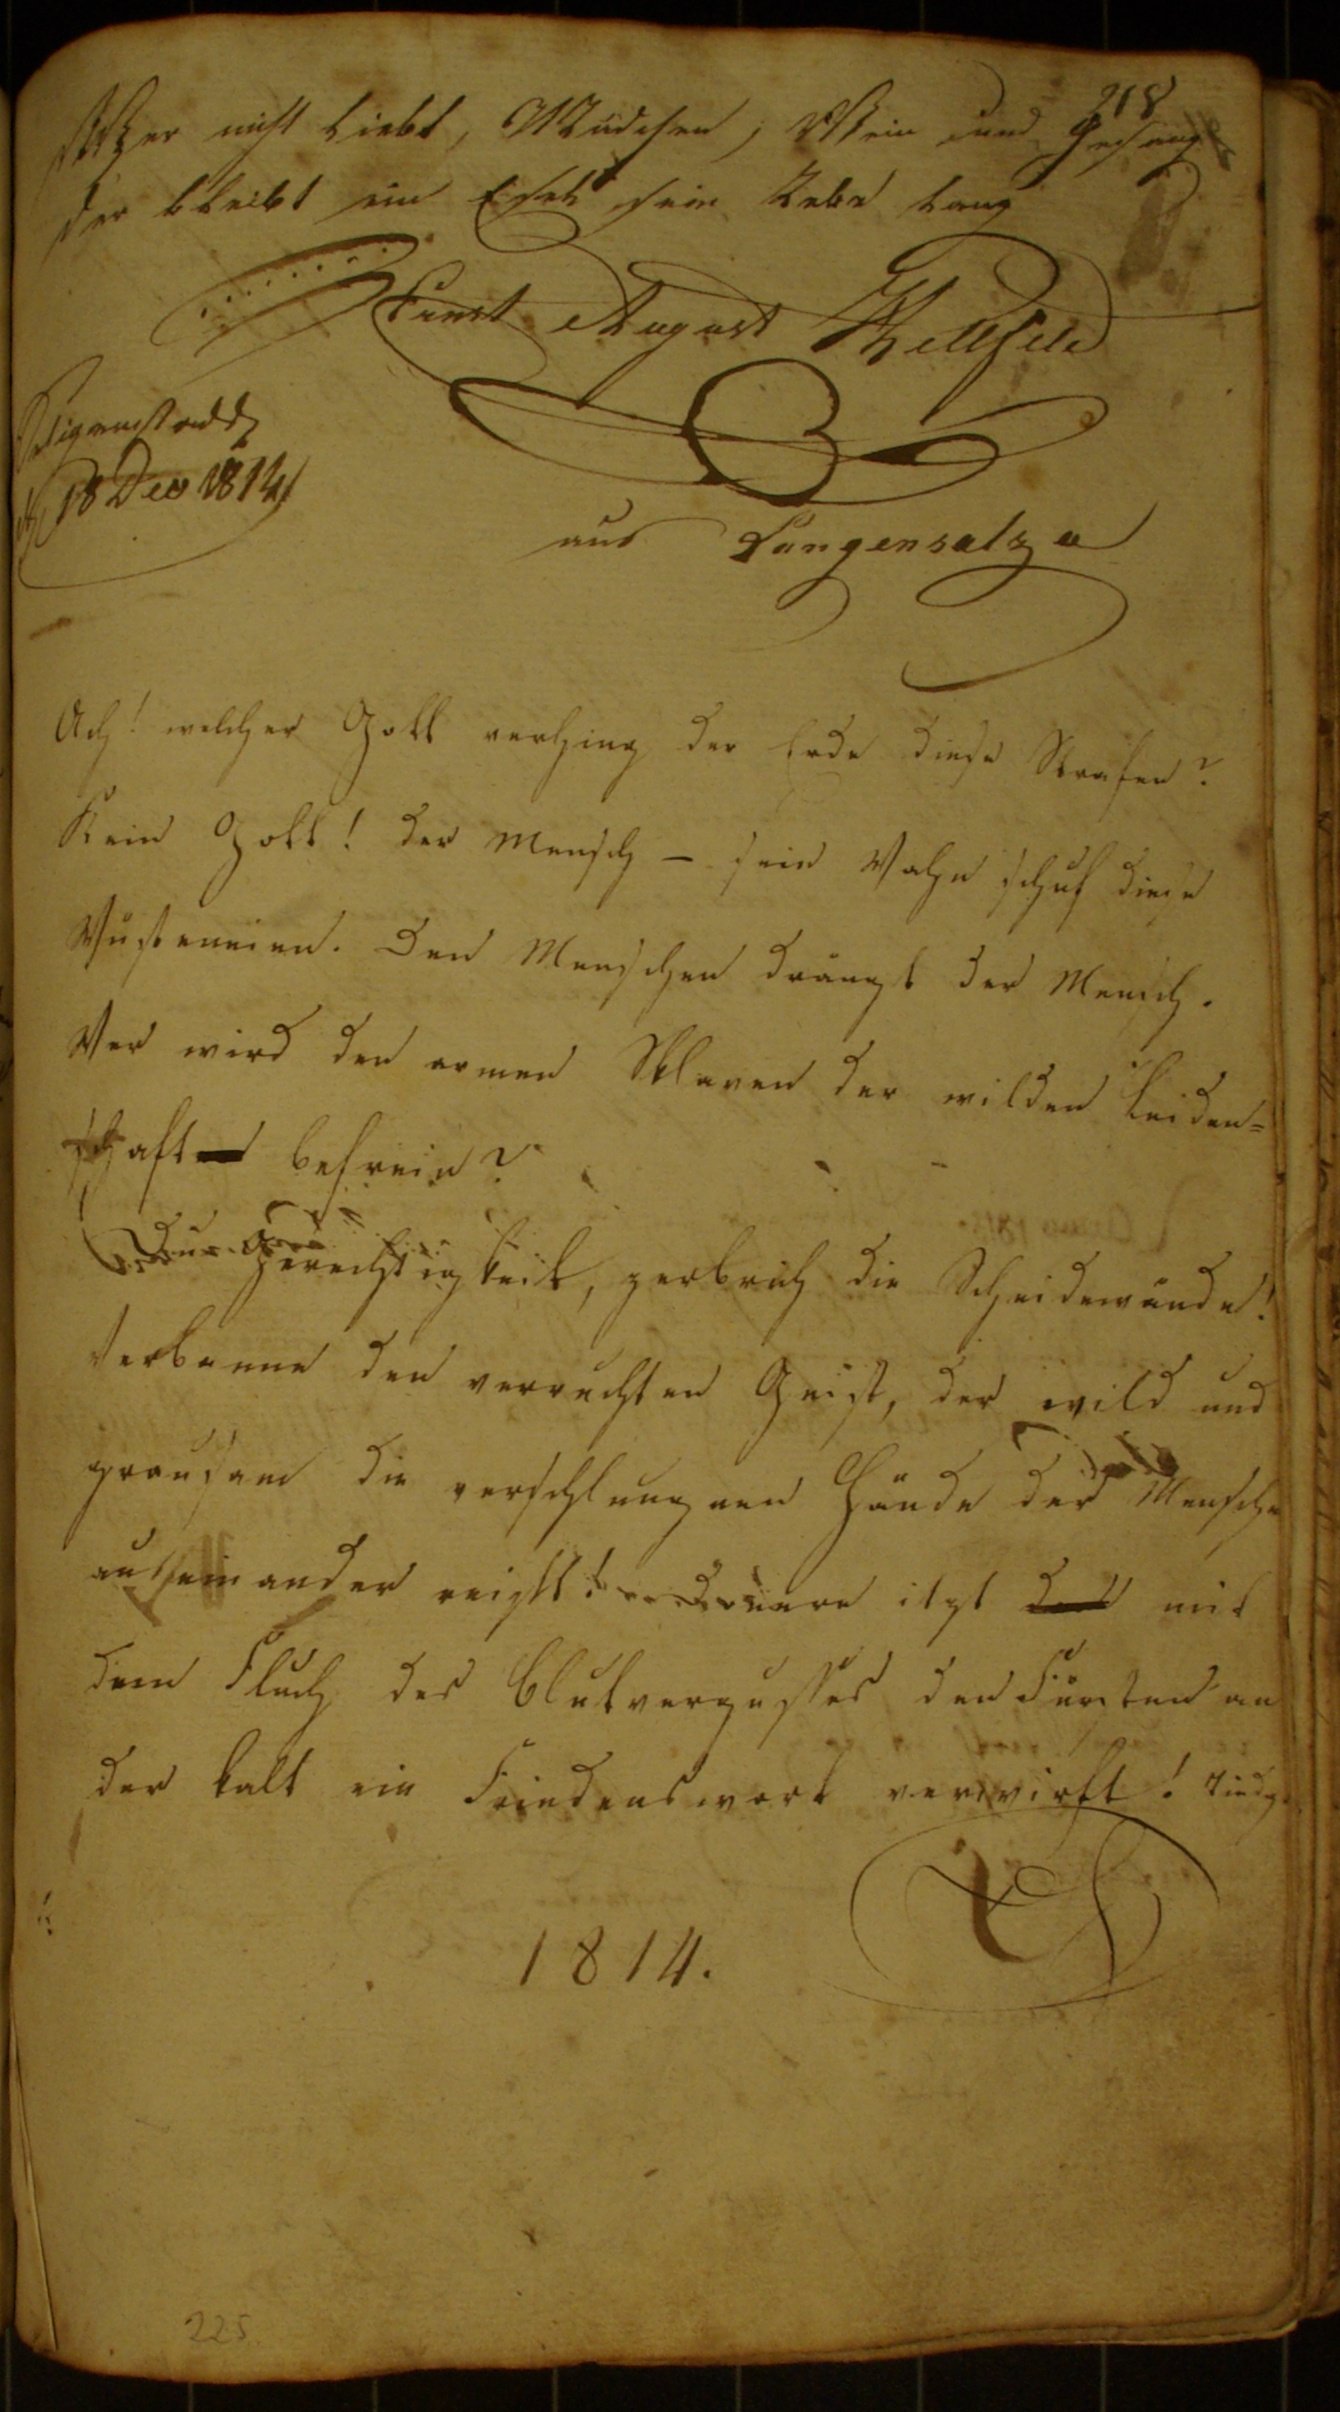 218
Wer nicht liebt, Mädchen, Wein und Gesang
der bleibt ein Esel sein Lebe lang
Ernst August
Heligenstadt
18 Dec 1814
aus Langensalza
Ach! welcher Gott verhing der Erde diese Strafen?
Kein Gott! der Mensch – sein Wahn schuf diese
Wüsteneien. Den Menschen drängt der Mensch.
Wer wird den armen Sklaven der wilden Leiden=
schaft befrein?
Du Gerechtigkeit, zerbrich die Scheidewände!
Verbanne den verruchten Geist, der wild und
grausam die verschlungnen Hände der Mensche
auseinander reisst! Donnere itzt mit
dem Fluch des Blutvergusses den Fürsten an
der kalt ein Friedenswort verwirft! Tiedg.
1814.
225